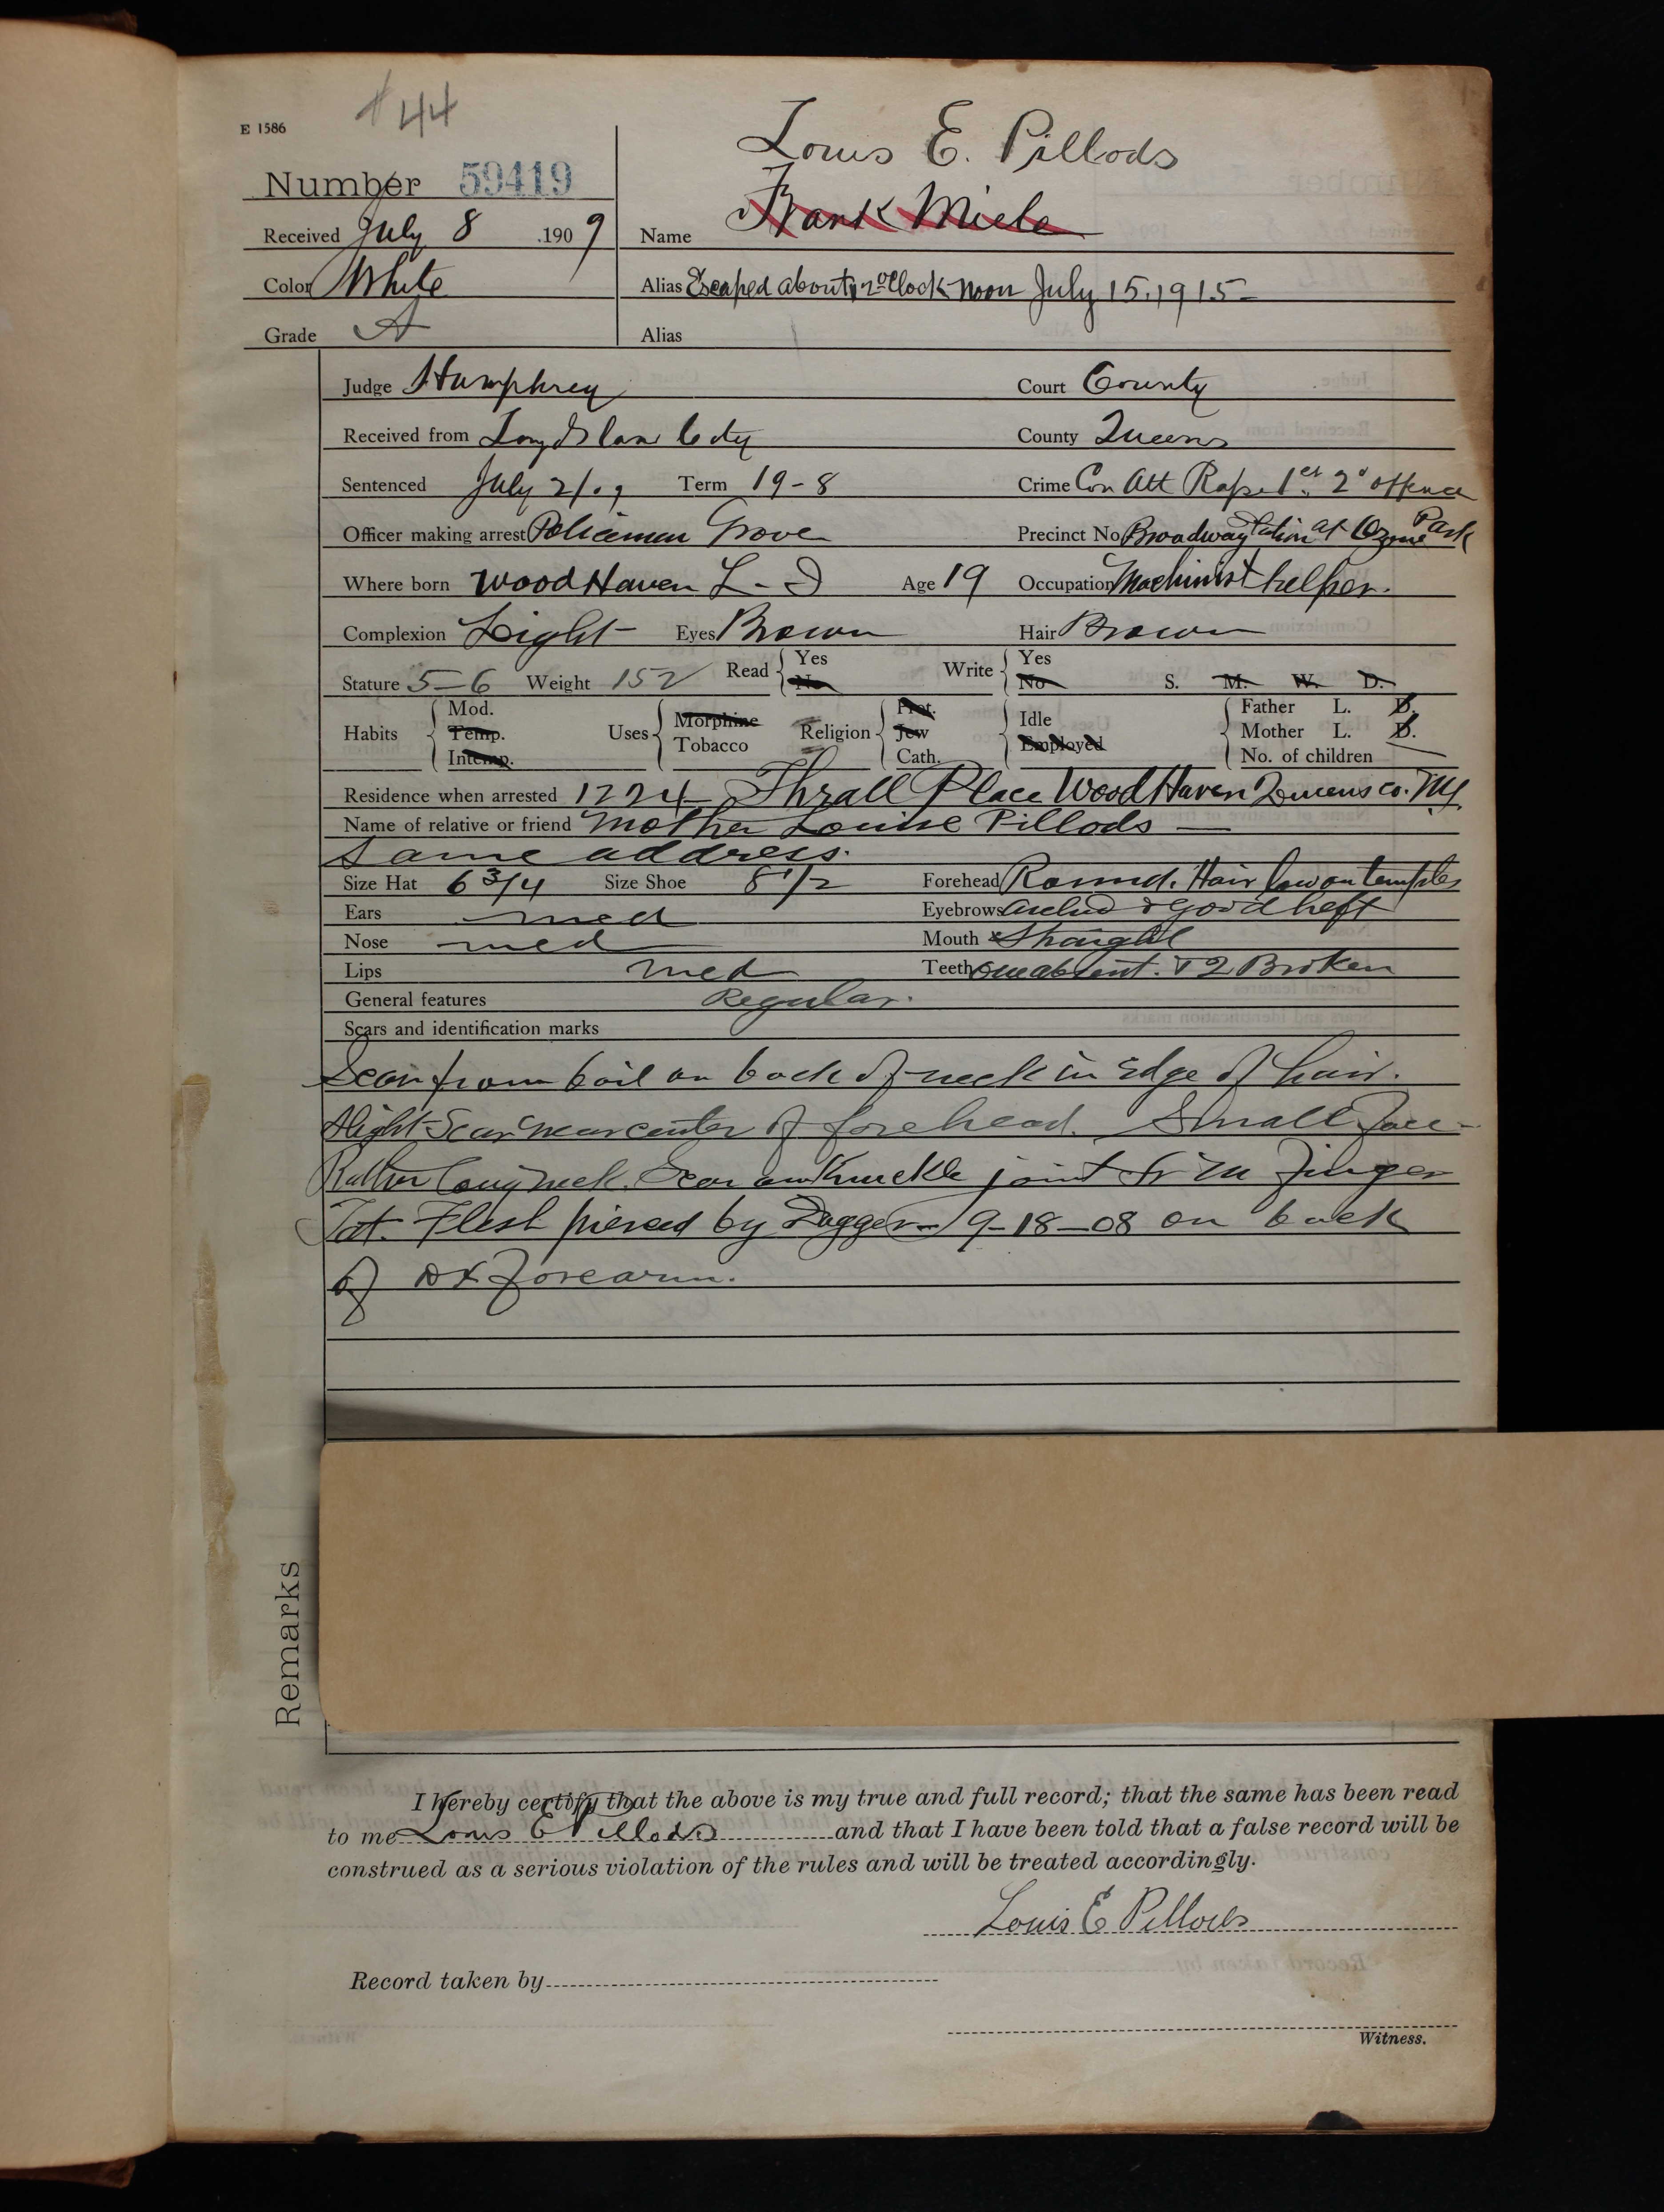 # 44
E 1586
Louis E. Pillods
Number 59419
Frank Miele
Received July 8 .1909 Name
Color White Alias Escaped about 12 oClock noon July 15. 1915-
Grade A Alias
Judge Humphrey Court County
Received from Long Islan City County Queens
Sentenced July 2/09 Term 19-8 Crime Con Att Rape 1st. 2d offence
Officer making arrest Policeman Grove Precinct No Broadway Station at Ozone Park
Where born Wood Haven L-I Age 19 Occupation Machinist helper.
Complexion Light Eyes Brown Hair Brown
Stature 5-6 Weight 152 Read { Yes No Write { Yes No S. M. W. D.
Habits { Mod. Temp. Intemp. Uses { Morphine Tobacco Religion { Prot. Jew Cath. { Idle Employed { Father L. D. Mother L. D. No. of children
Residence when arrested 1224 Thrall Place Wood Haven Queens co. NY.
Name of relative or friend Mother Louise Pillods
Same address.
Size Hat 6 3/4 Size Shoe 8 1/2 Forehead Round. Hair low on temples
Ears med Eyebrows arched & good heft
Nose med Mouth Straight
Lips med Teeth one absent. & 2 Broken
General features Regular.
Scars and identification marks
Scar from boil on back of neck in Edge of hair.
Slight Scar near center of forehead. Small face-
Rather long neck. Scar on Knuckle joint M Finger
Tat. Flesh pierced by Dagger - 9-18-08 on back
of forearm.
Remarks
I hereby certify that the above is my true and full record; that the same has been read
to me Louis E Pillods and that I have been told that a false record will be
construed as a serious violation of the rules and will be treated accordingly.
Louis E Pillods
Record taken by
Witness.